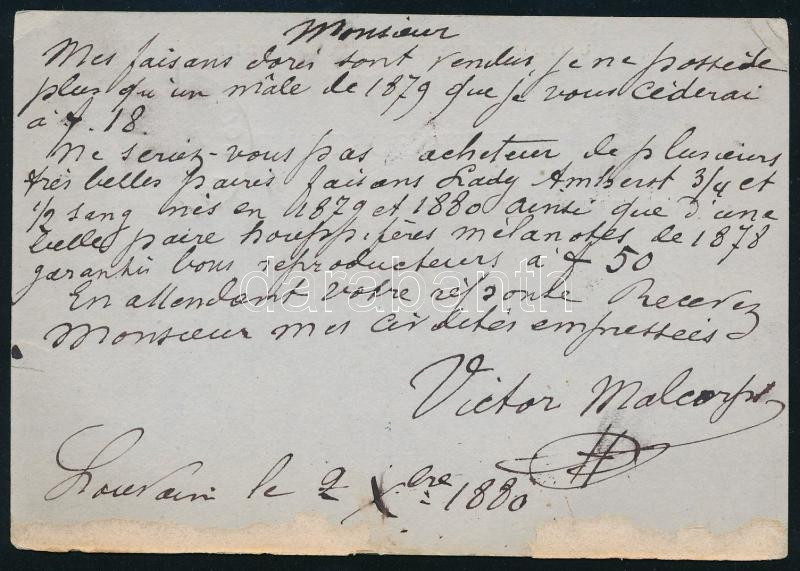 Monsieur
Mes faisans dorés sont vendus je ne possède
plus qu'un mâle de 1879 que je vous céderai
à f. 18.
Ne seriez-vous pas acheteur de plusieurs
très belles paires faisans Lady Amherst 3/4 et
1/2 sang nés en 1879 et 1880 ainsi que d'une
belle paire houppifères mélanotes de 1878
garantis bons reproducteurs à f 50
En attendant votre réponse Recevez
Monsieur mes civilités empressées
Victor Malcorps
Louvain le 9 Xbre 1880
darabanth